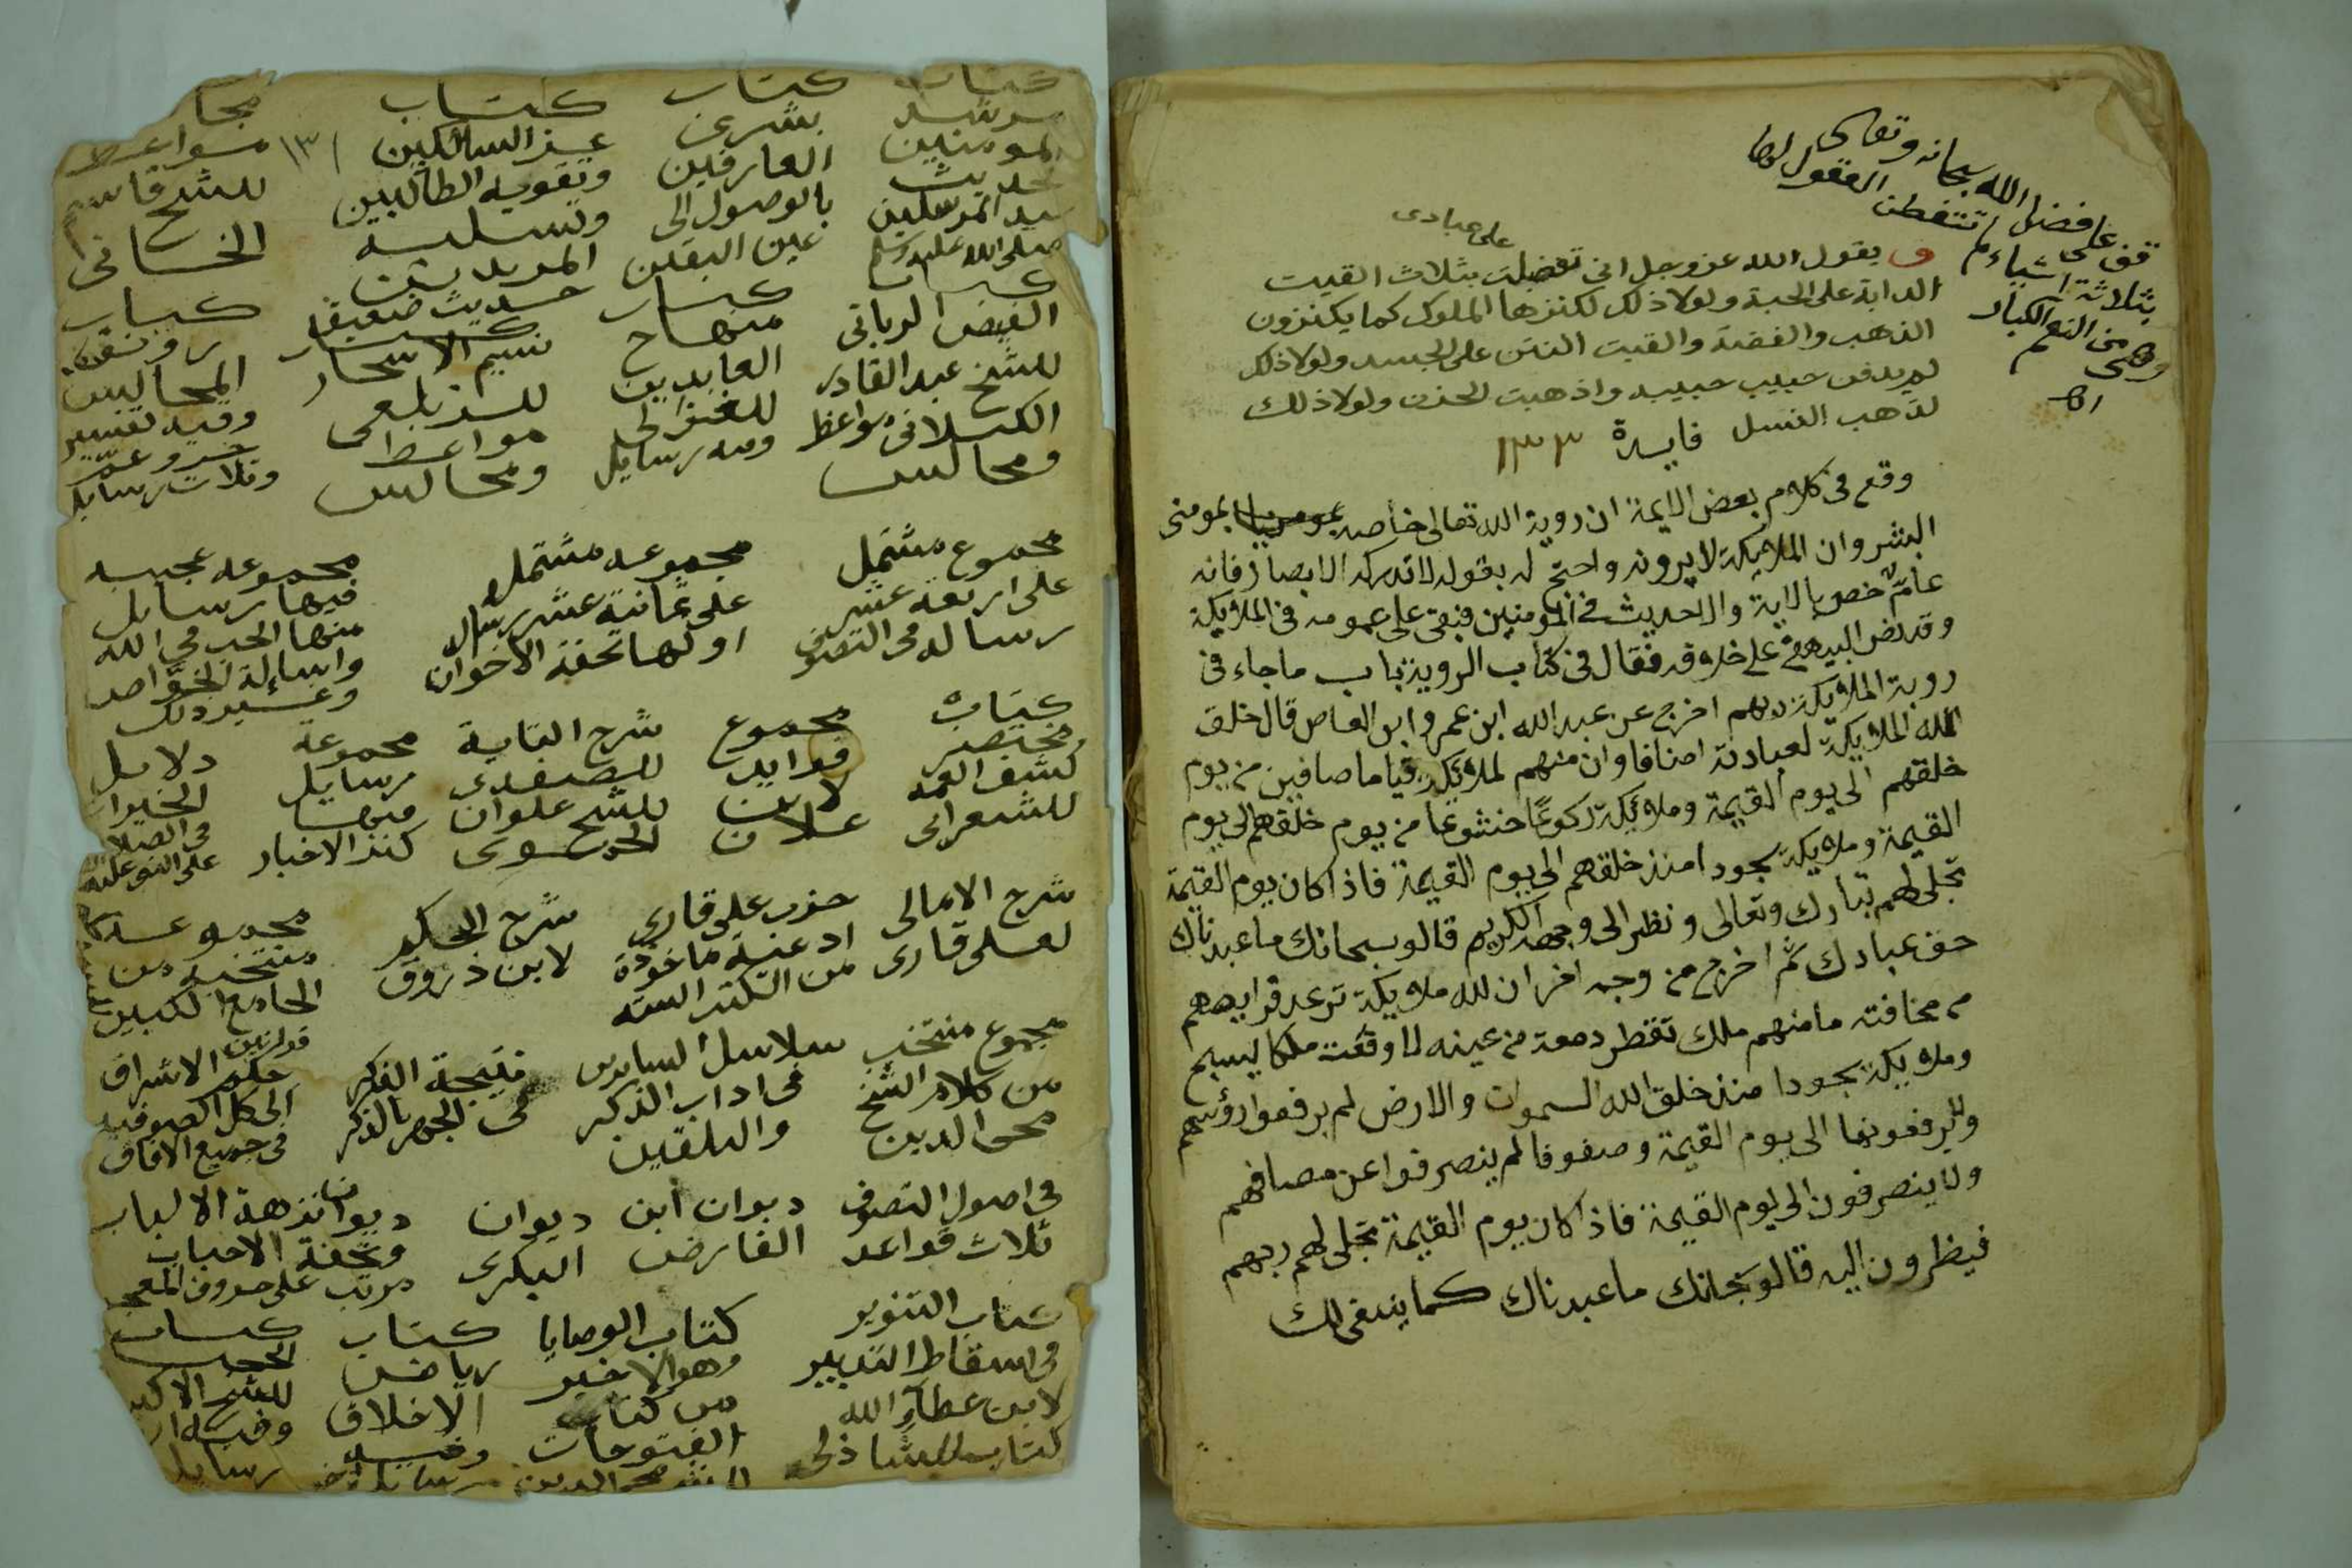 قف على فضل الله سبحانه وتعالى
بثلاثة اشياء لم تتفطن العقول لها
وهى من النعم الكبار
اهـ
على عبادى
و يقول الله عز وجل انى تفضلت بثلاث القيت
الدابة على الحبة ولولا ذلك لكنزها الملوك كما يكنزون
الذهب والفضة والقيت النتن على الجسد ولولا ذلك
لم يدفن حبيب حبيبه واذهبت الحزن ولولا ذلك
لذهب النسل فايدة ١٣٣
وقع فى كلام بعض الايمة ان روية الله تعالى خاصه بمومنى
البشر وان الملايكة لا يرونه واحتج له بقوله لا تدركه الابصار فانه
عام خص بالاية والاحديث فى المومنين فبقى على عمومه فى الملايكة
وقد نص البيهقى على خلافه فقال فى كتاب الروية باب ماجاء فى
روية الملايكة ربهم اخرج عن عبد الله ابن عمرو ابن العاص قال خلق
الله الملايكة لعبادته اصنافا وان منهم لملايكة قياما صافين من يوم
خلقهم الى يوم القيمة وملائكة ركوعا خشوعا من يوم خلقهم الى يوم
القيمة وملايكة سجودا منذ خلقهم الى يوم القيمة فاذا كان يوم القيمة
تجلى لهم تبارك وتعالى ونظر الى وجهه الكريم قالو سبحانك ما عبدناك
حق عبادك ثم اخرج من وجه اخر ان لله ملايكة ترعد فرايصهم
من مخافته مامنهم ملك تقطر دمعة من عينه الا وقعت ملكا يسبح
وملايكة سجودا منذ خلق الله السموات والارض لم يرفعوا رؤسهم
ولا يرفعونها الى يوم القيمة وصفوفا لم ينصرفوا عن مصافهم
ولا ينصرفون الى يوم القيمة فاذا كان يوم القيمة تجلى لهم ربهم
فيظرون اليه قالو سبحانك ما عبدناك كما ينبغى لك
كتاب
مرشد
المومنين
لحديث
سيد المرسلين
صلى الله عليه وسلم
كتاب
بشرى
العارفين
بالوصول الى
عين اليقين
كتاب
عز السالكين ١٣١
وتقوية الطالبين
وتسلية
المريدين
حديث ضعيف
مواعظ
للشيخ قاسم
الخانى
كتاب
الفيض الربانى
للشيخ عبد القادر
الكيلانى مواعظ
ومجالس
كتاب
منهاج
العابدين
للغزالى
ومعه رسايل
كتاب
نسيم الاسحار
للزيلعى
مواعظ
ومجالس
كتاب
رونق
المجالس
وفيه تفسير
جزو عم
وثلاث رسايل
مجموع مشتمل
على اربعة عشر
رساله فى التصوف
مجموعه مشتمله
على ثمانية عشر رساله
اولها تحفة الاخوان
مجموعه عجيبه
فيها رسايل
منها الحب فى الله
واسايلة الخواص
وغير ذلك
كتاب
مختصر
كشف الغمه
للشعرانى
مجموع
فوايد
لابن
علان
شرح التايية
للصفدى
للشيخ علوان
الحموى
مجموعة
رسايل
منها
كنز الاخبار
دلايل
الخيرات
فى الصلاة
على النبى عليه
شرح الامالى
لعلى قارى
حزب على قارى
ادعية ماخوذة
من الكتب الستة
شرح الحكم
لابن زروق
مجموعه
منتخبه من
الجامع الكبير
مجموع منتخب
من كلام الشيخ
محى الدين
سلاسل
فى اداب الذكر
والتلقين
نتيجة الفكر
فى الجهر بالذكر
قوانين
حكم الاشراق
الى كل الصوفيه
فى جميع الافاق
فى اصول التصوف
ثلاث قواعد
ديوان ابن
الفارض
ديوان
البكرى
ديوان نزهة الالباب
وتحفة الاحباب
مرتب على حروف المعجم
كتاب التنوير
فى اسقاط التدبير
لابن عطاء الله
كتاب للشاذلى
كتاب الوصايا
وهو الاخير
من كتاب
الفتوحات
للشيخ محى الدين
كتاب
رياض
الاخلاق
وفيه
رسايل
كتاب
الحجب
للشيخ الاكبر
وفيه
رسايل